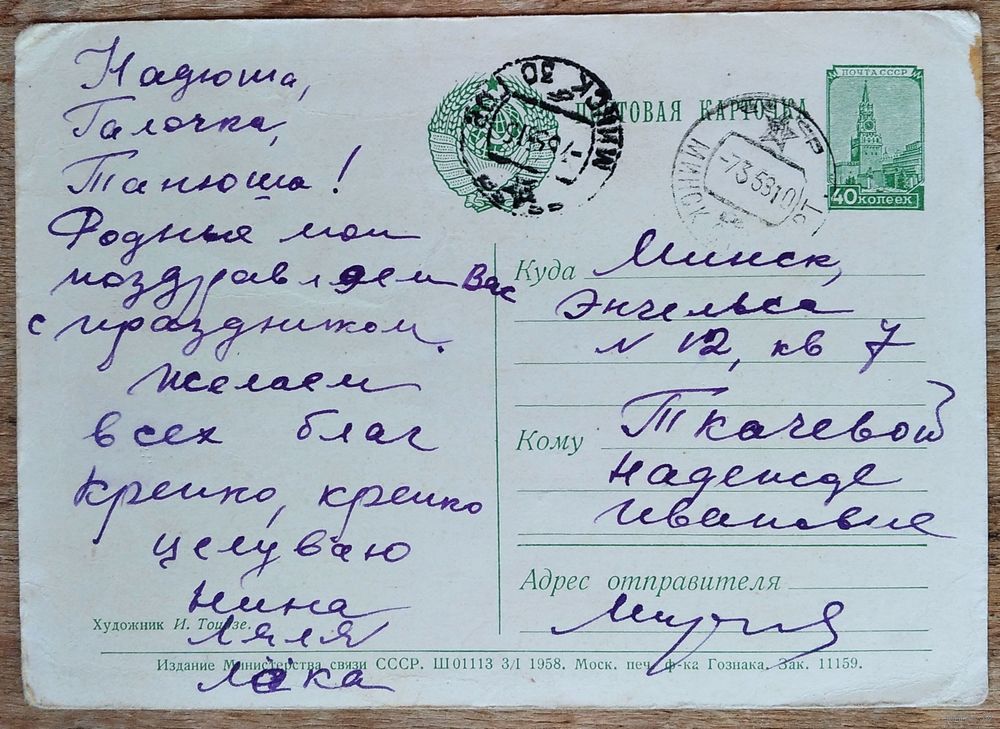 Надюша,
Галочка,
Танюша!
Родные мои
поздравляем Вас
с праздником.
Желаем
всех благ
Крепко, крепко
целуваю
Нина
Ляля
ПОЧТОВАЯ КАРТОЧКА
ПОЧТА СССР
40 копеек
МИНСК
МИНСК
-7358
Куда Минск,
Энгельса
N 12, кв 7
Кому Ткачевой
Надежде
Ивановне
Адрес отправителя
Художник И. Тоидзе.
Издание Министерства связи СССР. Ш 01113 3/I 1958. Моск. печ. ф-ка Гознака. Зак. 11159.